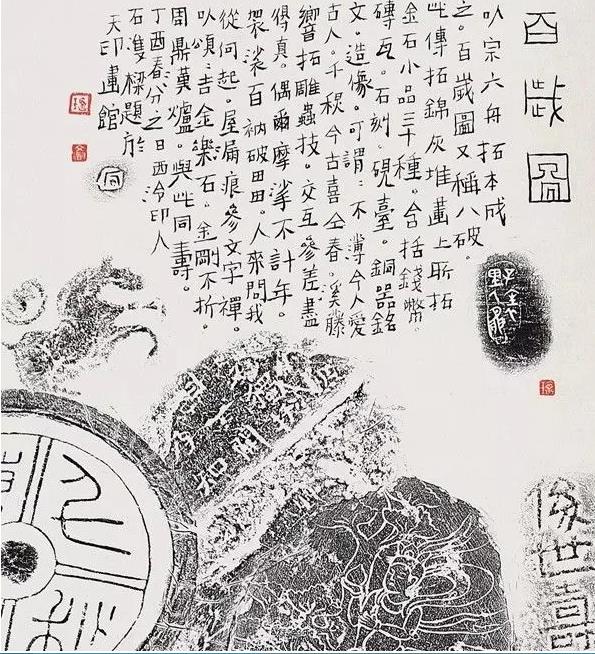 百歲圖
㕥宗六舟拓本成
之。百歲圖又稱八破。
此傳拓錦灰堆畫上所拓
金石小品三千種。含括錢幣。
磚瓦。石刻。硯臺。銅器銘
文。造像。可謂:不薄今人愛
古人。千秋今古喜仝春。溪藤
響拓雕蟲技。交互參差盡
得真。偶爾摩挲不計年。
袈裟百衲破田田。人來問我
從何起。屋漏痕參文字禪。
㕥頌:吉金樂石。金剛不折。
周鼎漢爐。與此同壽。
丁酉春分之日西泠印人
石雙樑題於
天印畫館
世壽